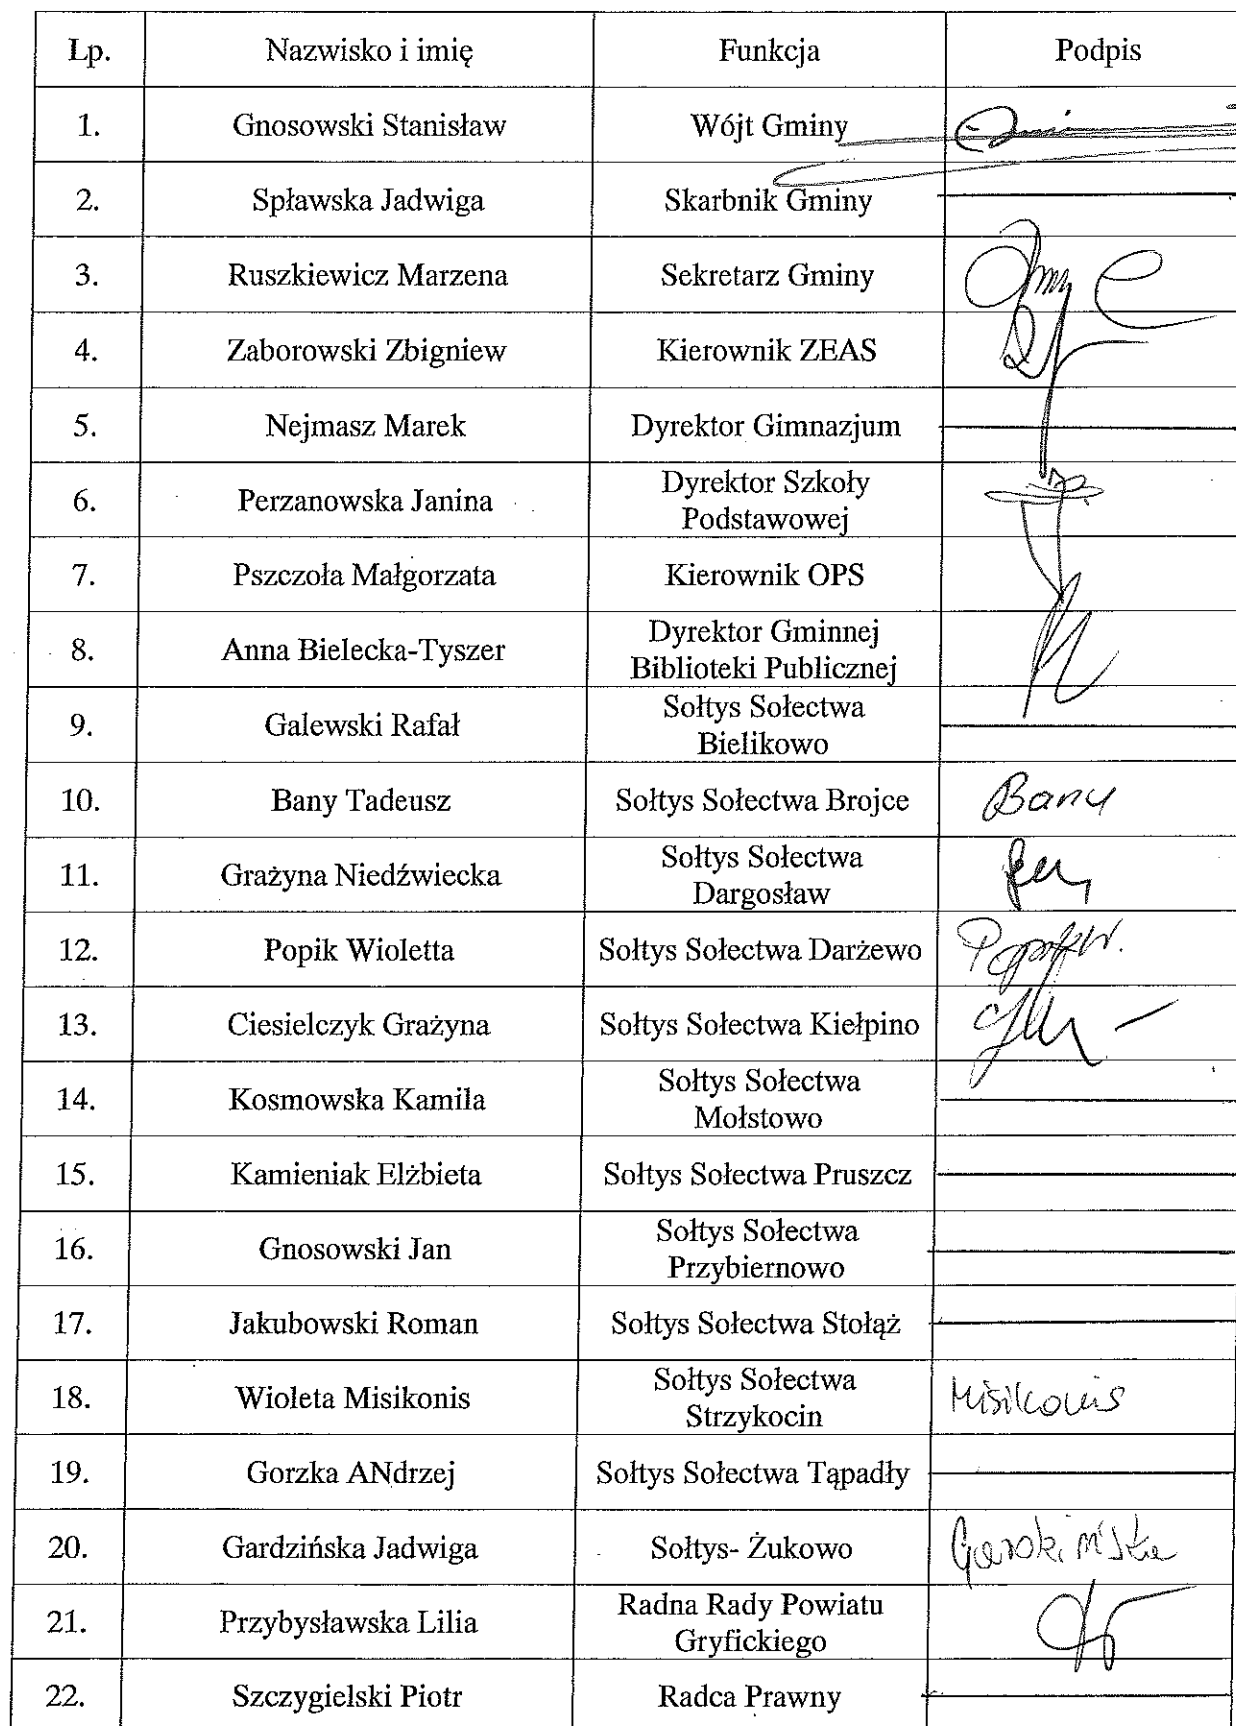 Lp. Nazwisko i imię Funkcja Podpis
1. Gnosowski Stanisław Wójt Gminy
2. Spławska Jadwiga Skarbnik Gminy
3. Ruszkiewicz Marzena Sekretarz Gminy
4. Zaborowski Zbigniew Kierownik ZEAS
5. Nejmasz Marek Dyrektor Gimnazjum
6. Perzanowska Janina Dyrektor Szkoły
Podstawowej
7. Pszczoła Małgorzata Kierownik OPS
8. Anna Bielecka-Tyszer Dyrektor Gminnej
Biblioteki Publicznej
9. Galewski Rafał Sołtys Sołectwa
Bielikowo
10. Bany Tadeusz Sołtys Sołectwa Brojce Bany
11. Grażyna Niedźwiecka Sołtys Sołectwa
Dargosław
12. Popik Wioletta Sołtys Sołectwa Darżewo Popik W.
13. Ciesielczyk Grażyna Sołtys Sołectwa Kiełpino
14. Kosmowska Kamila Sołtys Sołectwa
Mołstowo
15. Kamieniak Elżbieta Sołtys Sołectwa Pruszcz
16. Gnosowski Jan Sołtys Sołectwa
Przybiernowo
17. Jakubowski Roman Sołtys Sołectwa Stołąż
18. Wioleta Misikonis Sołtys Sołectwa
Strzykocin Misikonis
19. Gorzka ANdrzej Sołtys Sołectwa Tąpadły
20. Gardzińska Jadwiga Sołtys- Żukowo Gardzińska
21. Przybysławska Lilia Radna Rady Powiatu
Gryfickiego
22. Szczygielski Piotr Radca Prawny